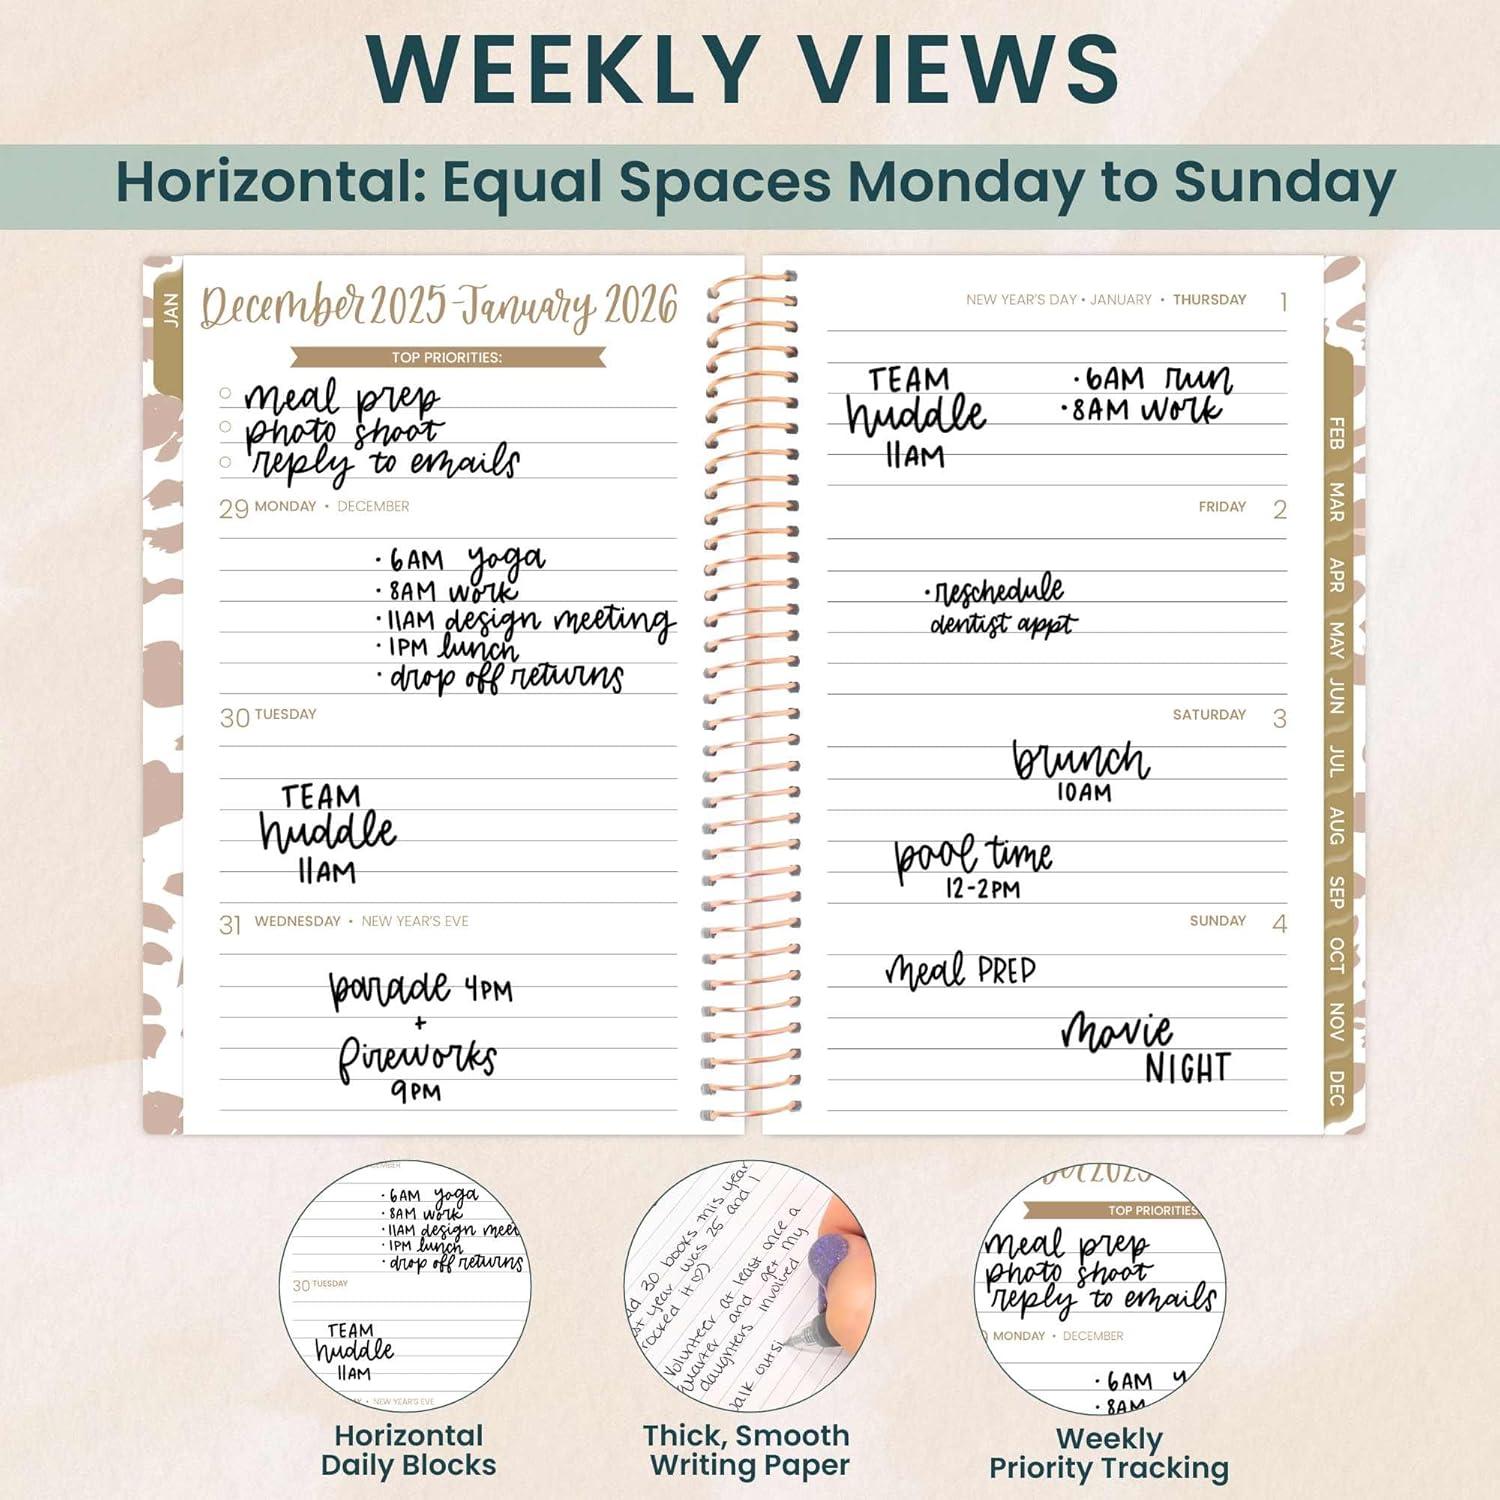 WEEKLY VIEWS
Horizontal: Equal Spaces Monday to Sunday
JAN
December 2025-January 2026
TOP PRIORITIES:
meal prep
photo shoot
reply to emails
29 MONDAY • DECEMBER
• 6AM yoga
• 8AM work
• 11AM design meeting
• 1PM lunch
• drop off returns
30 TUESDAY
TEAM
huddle
11AM
31 WEDNESDAY • NEW YEAR'S EVE
parade 4PM
+
fireworks
9PM
NEW YEAR'S DAY • JANUARY • THURSDAY 1
TEAM
huddle
11AM
• 6AM run
• 8AM work
FRIDAY 2
• reschedule
dentist appt
SATURDAY 3
brunch
10AM
pool time
12-2PM
SUNDAY 4
meal PREP
movie
NIGHT
FEB
MAR
APR
MAY
JUN
JUL
AUG
SEP
OCT
NOV
DEC
• 6AM yoga
• 8AM work
• 11AM design meet
• 1PM lunch
• drop off returns
30 TUESDAY
TEAM
huddle
11AM
• NEW YEAR'S EVE
Horizontal
Daily Blocks
30 books this year
year was 25 and I
rocked it ♡)
Volunteer at least once a
quarter and get my
daughters involved
outsi
Thick, Smooth
Writing Paper
2025
TOP PRIORITIES
meal prep
photo shoot
reply to emails
MONDAY • DECEMBER
• 6AM y
• 8AM
Weekly
Priority Tracking